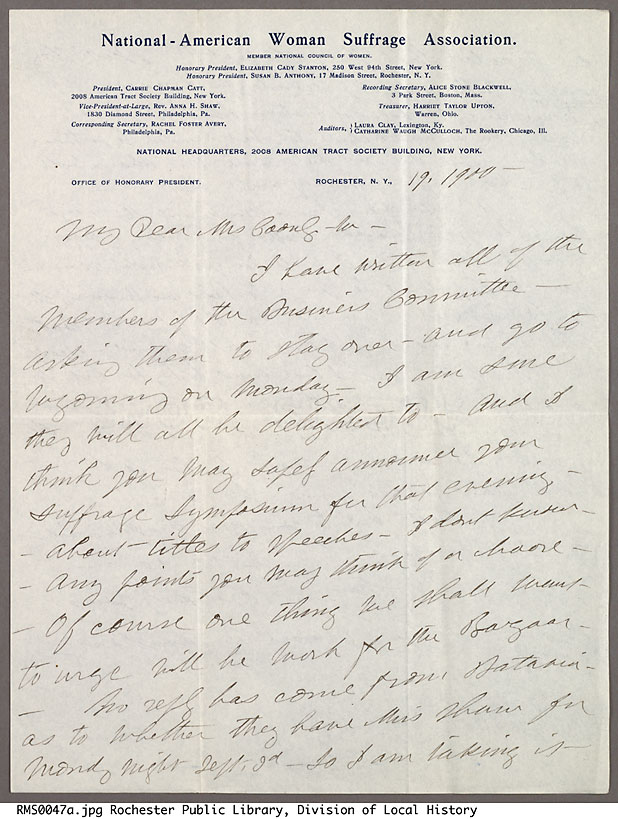 National-American Woman Suffrage Association.
MEMBER NATIONAL COUNCIL OF WOMEN.
Honorary President, ELIZABETH CADY STANTON, 250 West 94th Street, New York.
Honorary President, SUSAN B. ANTHONY, 17 Madison Street, Rochester, N. Y.
President, CARRIE CHAPMAN CATT,
2008 American Tract Society Building, New York.
Vice-President-at-Large, REV. ANNA H. SHAW,
1830 Diamond Street, Philadelphia, Pa.
Corresponding Secretary, RACHEL FOSTER AVERY,
Philadelphia, Pa.
Recording Secretary, ALICE STONE BLACKWELL,
3 Park Street, Boston, Mass.
Treasurer, HARRIET TAYLOR UPTON,
Warren, Ohio.
Auditors, { LAURA CLAY, Lexington, Ky.
CATHARINE WAUGH McCULLOCH, The Rookery, Chicago, Ill.
NATIONAL HEADQUARTERS, 2008 AMERICAN TRACT SOCIETY BUILDING, NEW YORK.
OFFICE OF HONORARY PRESIDENT. ROCHESTER, N. Y., 19, 1900 -
My Dear Mrs
I have written all of the
members of the Business Committee -
asking them to stay over - and go to
Wyoming on Monday - I am sure
they will all be delighted to - and I
think you may safely announce your
suffrage symposium for that evening -
- about titles to speeches - I don't know -
- any points you may think of or choose -
- Of course one thing we shall want
to urge will be work for the Bazaar -
- no reply has come from Batavia -
as to whether they have Miss Shaw for
Monday night Sept. 3d - so I am taking it
RMS0047a.jpg Rochester Public Library, Division of Local History